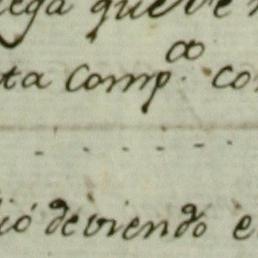 ega que ve
ta Comp.ª co
ió deviendo e